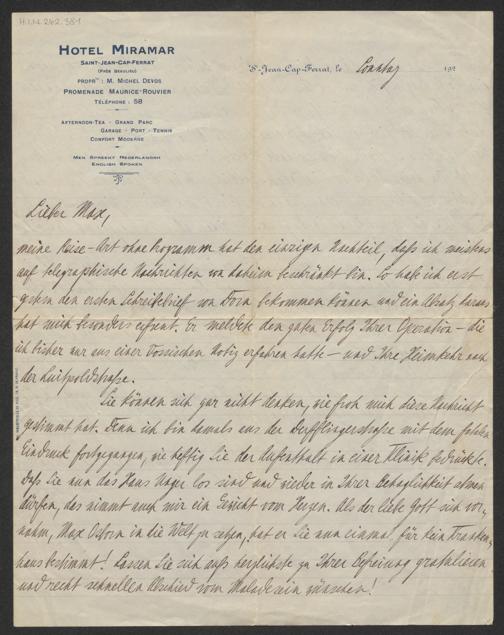 H.I.N. 242.381
HOTEL MIRAMAR
SAINT-JEAN-CAP-FERRAT
(PRÈS BEAULIEU)
PROPRre: M. MICHEL DEVOS
PROMENADE MAURICE-ROUVIER
TÉLÉPHONE: 58
AFTERNOON-TEA - GRAND PARC
GARAGE - PORT - TENNIS
CONFORT MODERNE
MEN SPREEKT NEDERLANDSH
ENGLISH SPOKEN
St-Jean-Cap-Ferrat, le Sonntag 192
Lieber Max,
meine Reise-Art ohne Programm hat den einzigen Nachteil, daß ich meistens
auf telegraphische Nachrichten von daheim beschränkt bin. So habe ich erst
gestern den ersten Schreibebrief von Dorn bekommen können und ein Absatz daraus
hat mich besonders erfreut. Er meldete den guten Erfolg Ihrer Operation – die
ich bisher nur aus einer Vossischen Notiz erfahren hatte – und Ihre Heimkehr nach
der Luitpoldstraße.
Sie können sich gar nicht denken, wie froh mich diese Nachricht
gestimmt hat. Denn ich bin damals aus der Derfflingerstraße mit dem fatalen
Eindruck fortgegangen, wie heftig Sie der Aufenthalt in einer Klinik bedrückte.
Daß Sie nun das Haus Unger los sind und wieder in Ihrer Behaglichkeit atmen
dürfen, das nimmt auch mir ein Gewicht vom Herzen. Als der liebe Gott sich vor-
nahm, Max Osborn in die Welt zu setzen, hat er Sie nun einmal für kein Kranken-
haus bestimmt! Lassen Sie sich aufs herzlichste zu Ihrer Befreiung gratulieren
und recht schnellen Abschied vom Maladesein wünschen!